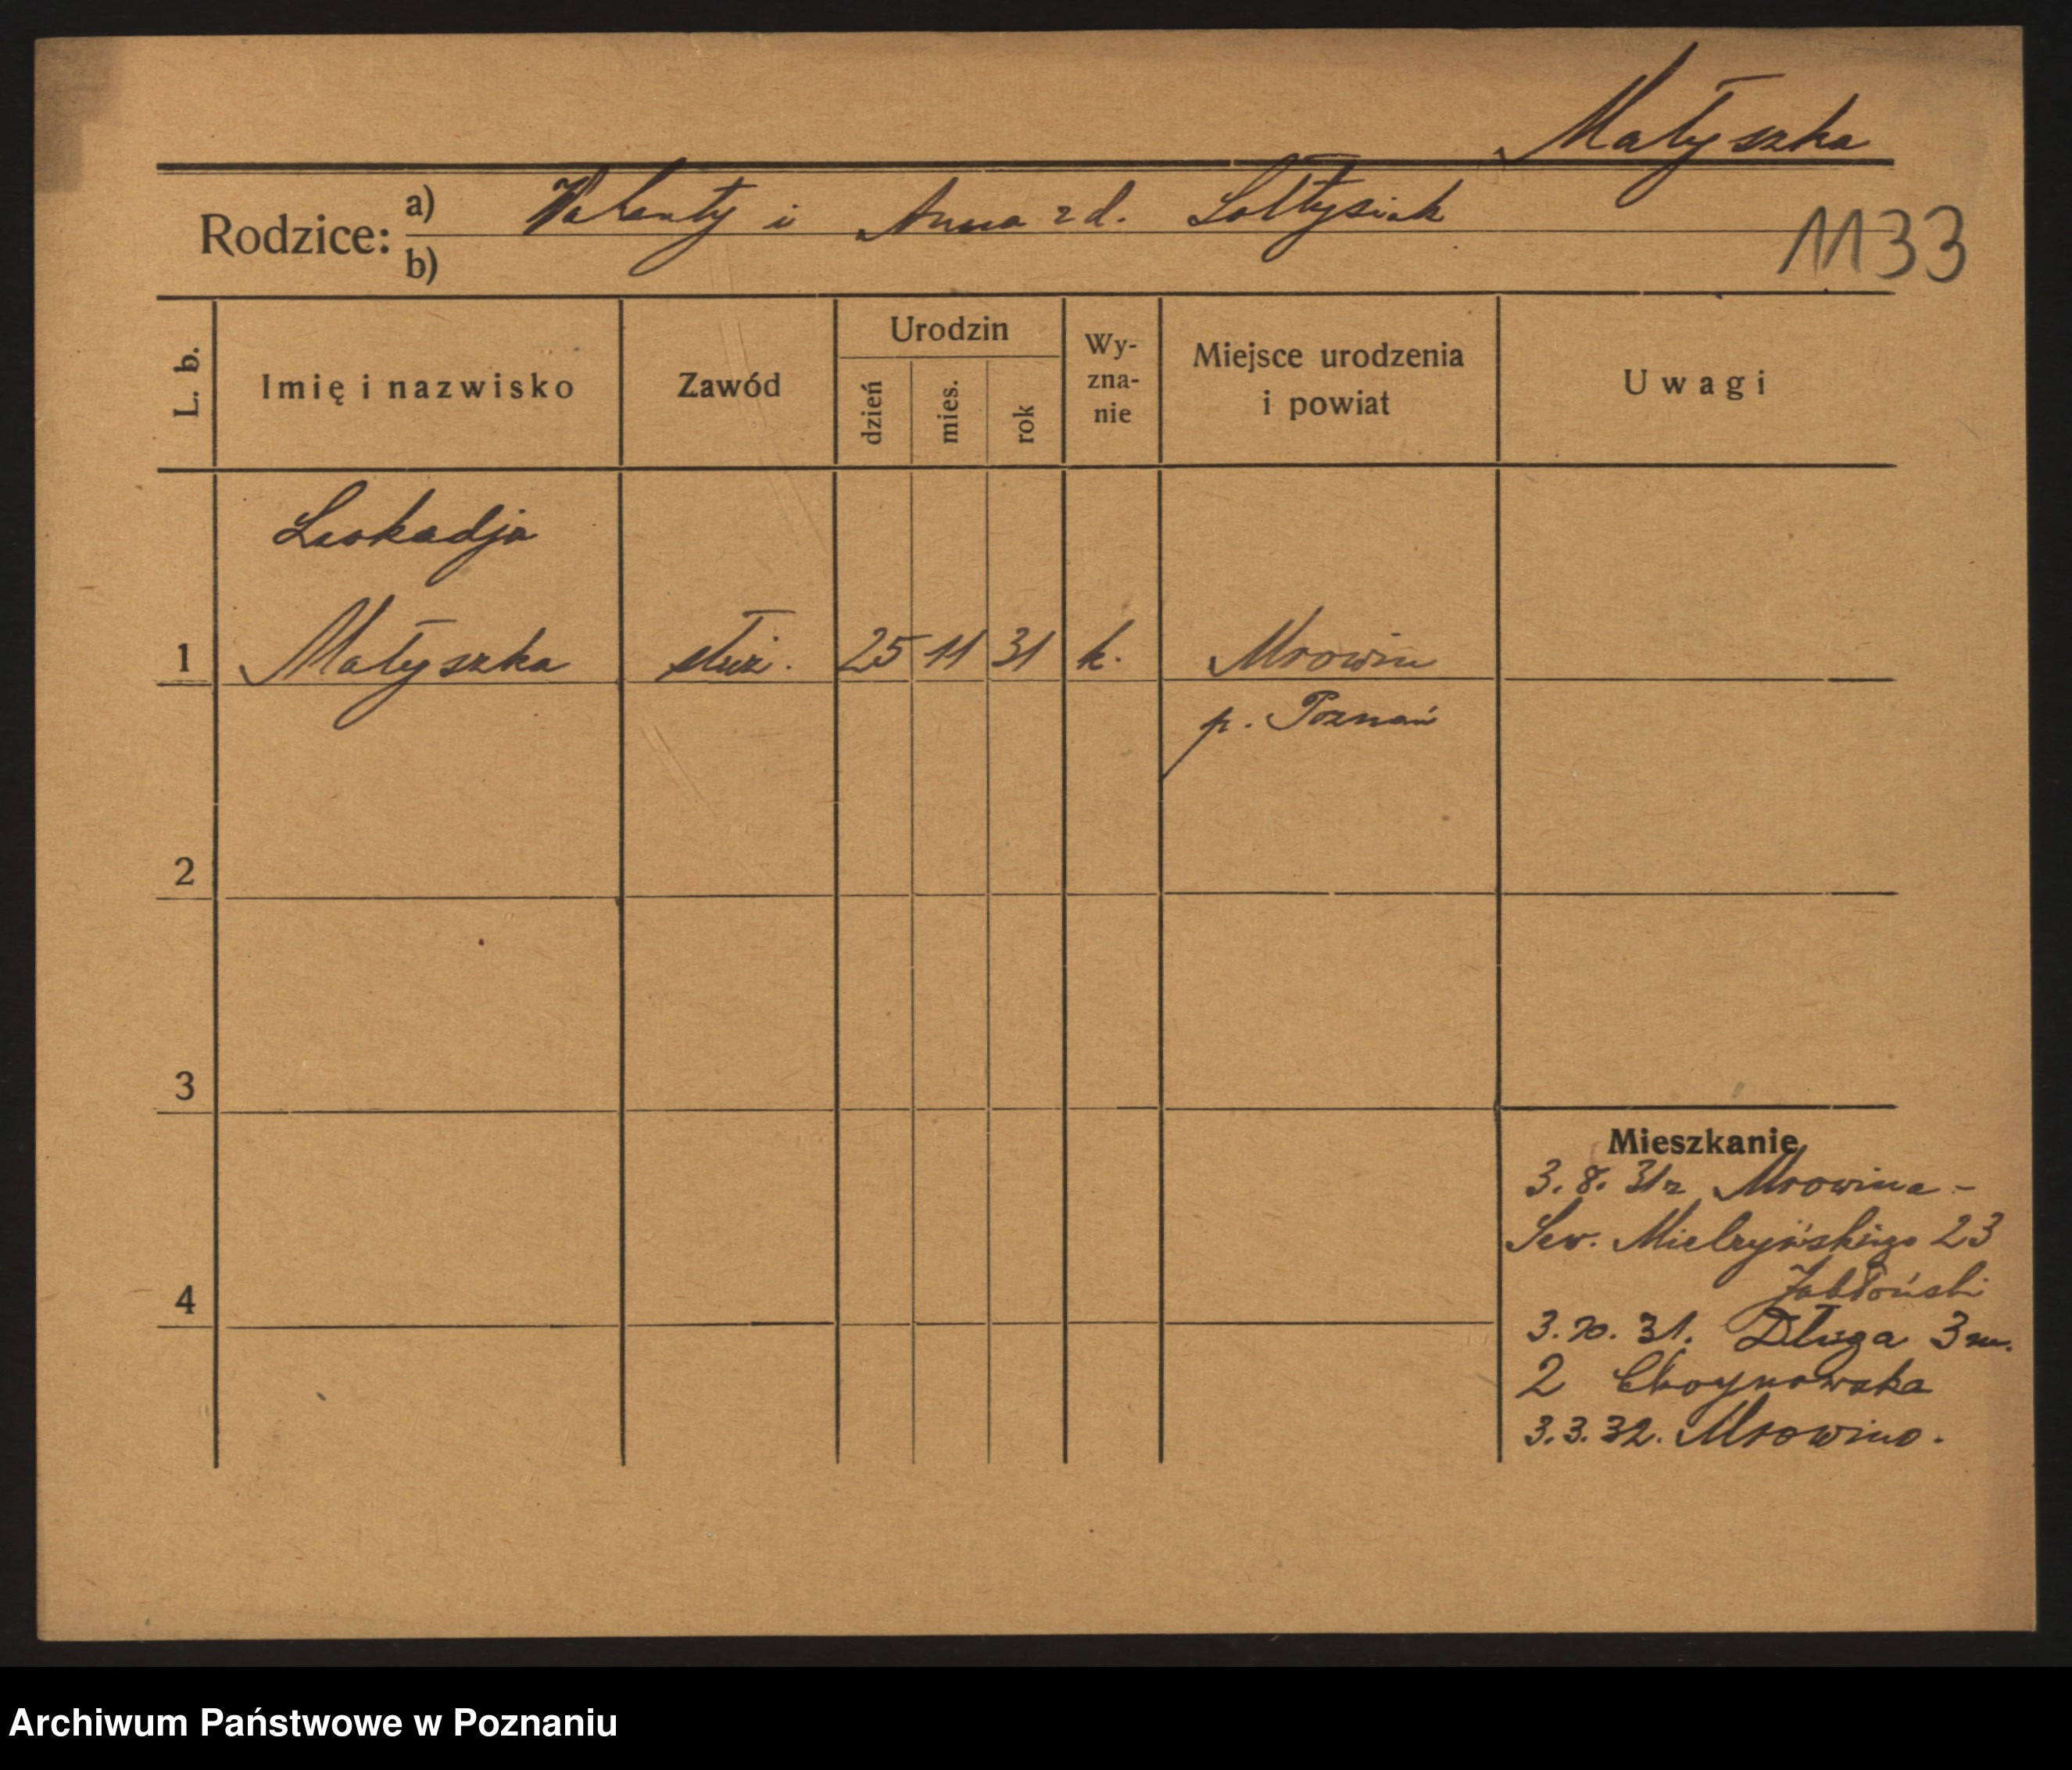 Małyszka
Rodzice: a) Walenty i Anna z d. Sołtysiak
b)
1133
L. b.
Imię i nazwisko
Zawód
Urodzin
dzień
mies.
rok
Wy-
zna-
nie
Miejsce urodzenia
i powiat
Uwagi
Leokadja
1 Małyszka służ. 25 11 31 k. Mrowin
p. Poznań
2
3
4
Mieszkanie
3. 8. 31 z Mrowina -
Sew. Mielżyńskiego 23
Jabłoński
3. 10. 31. Długa 3 m.
2 Choynowska
3. 3. 32. Mrowino.
Archiwum Państwowe w Poznaniu